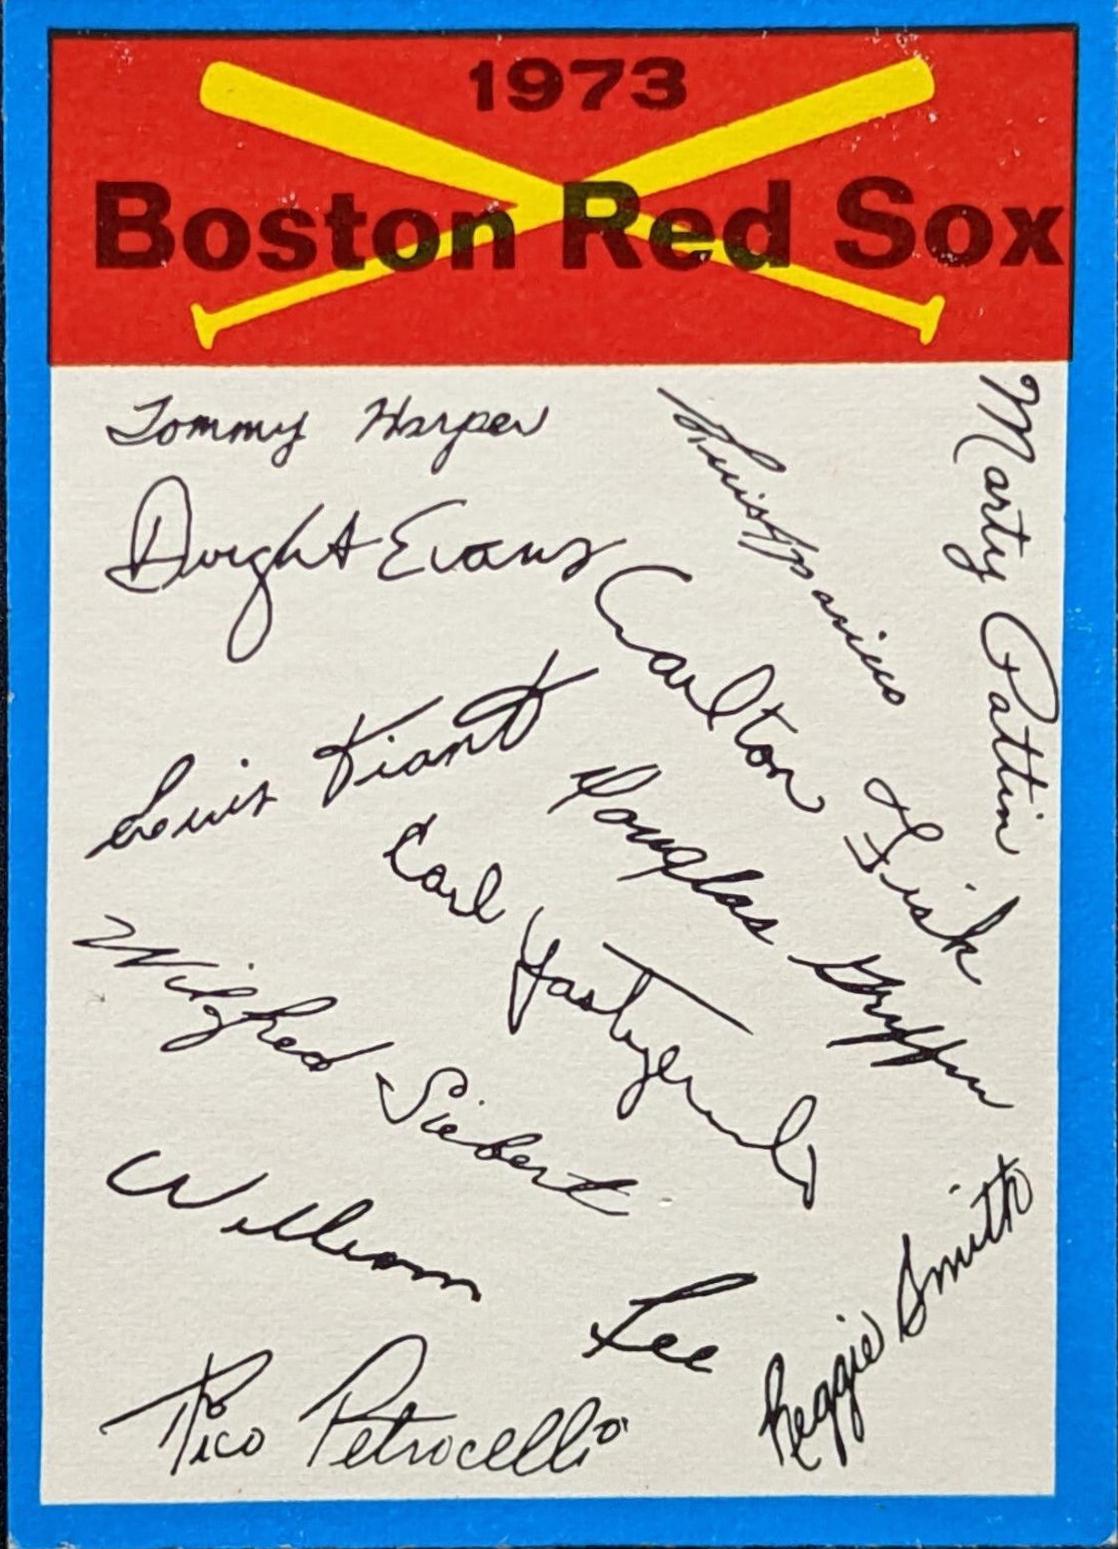 1973
Boston Red Sox
Tommy Harper
Luis Aparicio
Marty Pattin
Dwight Evans
Carlton Fisk
Luis Tiant
Douglas Griffin
Carl Yastrzemski
Wilfred Siebert
William Lee
Reggie Smith
Rico Petrocelli